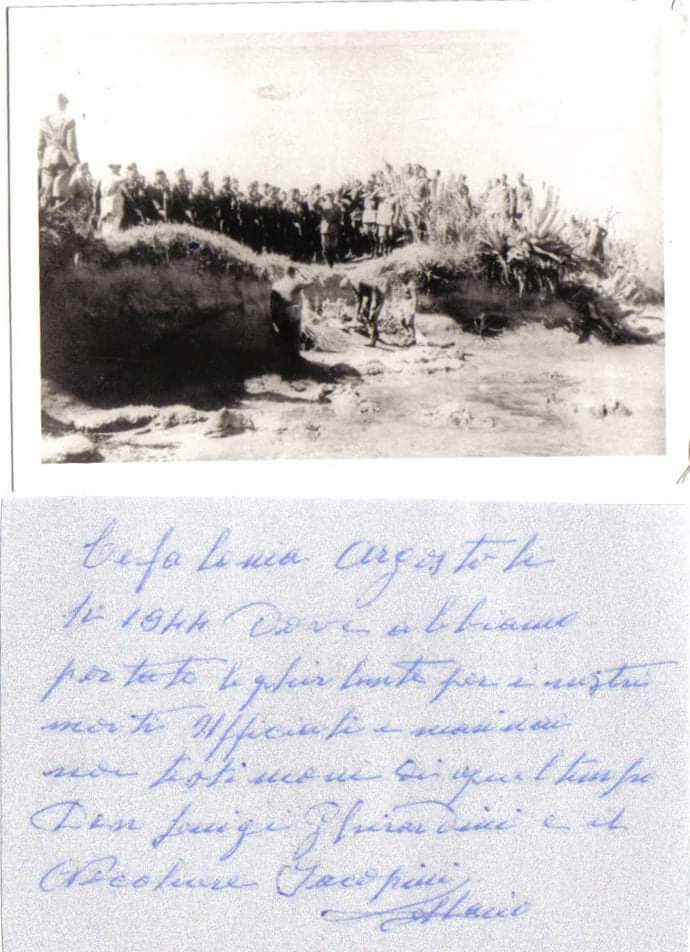 Cefalonia Argostoli
li 1944 Dove abbiamo
portato le ghirlante per i nostri
morti Ufficiali e marinai
noi testimoni di quel tempo
Don Luigi Ghirardini e il
Iacopini